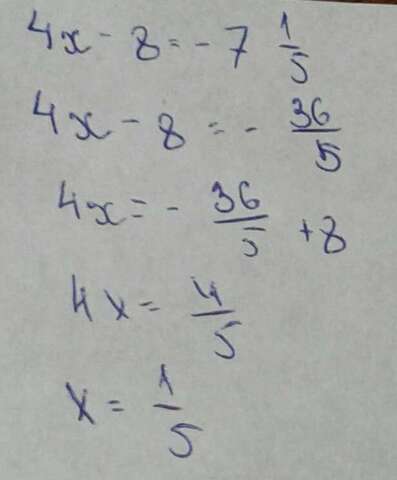 4x - 8 = - 7 1/5
4x - 8 = - 36/5
4x = - 36/5 + 8
4x = 4/5
x = 1/5